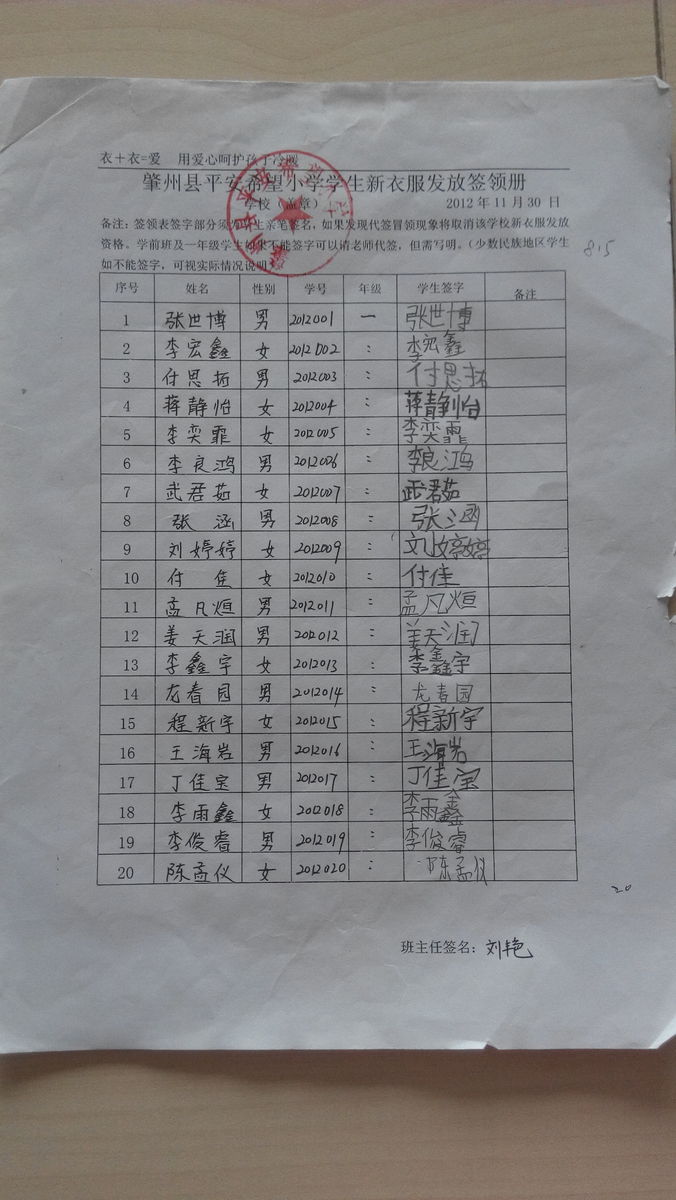 衣+衣=爱 用爱心呵护孩子冷暖
肇州县平安希望小学学生新衣服发放签领册
学校（盖章） 2012 年 11 月 30 日
备注：签领表签字部分须为学生亲笔签名，如果发现代签冒领现象将取消该学校新衣服发放
资格。学前班及一年级学生如果不能签字可以请老师代签，但需写明。（少数民族地区学生
如不能签字，可视实际情况说明）
8.5
序号 姓名 性别 学号 年级 学生签字 备注
1 张世博 男 2012001 一 张世博
2 李宏鑫 女 2012002 : 李宏鑫
3 付思拓 男 2012003 : 付思拓
4 蒋静怡 女 2012004 : 蒋静怡
5 李奕霏 女 2012005 : 李奕霏
6 李良鸿 男 2012006 : 李良鸿
7 武君茹 女 2012007 : 武君茹
8 张涵 男 2012008 : 张涵
9 刘婷婷 女 2012009 : 刘婷婷
10 付佳 女 2012010 : 付佳
11 孟凡烜 男 2012011 : 孟凡烜
12 姜天润 男 2012012 : 姜天润
13 李鑫宇 女 2012013 : 李鑫宇
14 龙春园 男 2012014 : 龙春园
15 程新宇 女 2012015 : 程新宇
16 王海岩 男 2012016 : 王海岩
17 丁佳宝 男 2012017 : 丁佳宝
18 李雨鑫 女 2012018 : 李雨鑫
19 李俊睿 男 2012019 : 李俊睿
20 陈孟仪 女 2012020 : 陈孟仪
20
班主任签名：刘艳